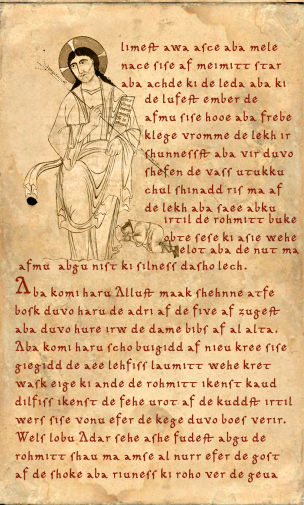 limeſt awa aſce aba mele
nace ſiſe af meimitt ſtar
aba achde ki de leda aba ki
de lufeſt ember de
afmu ſiſe hooe aba frebe
klege vromme de lekh ir
ſhunneſſt aba vir duvo
ſhefen de vaſſ utukku
chul ſhinadd riſ ma af
de lekh aba ſaee abku
irtil de rohmitt buke
obte ſeſe ki aſie wehe
elot aba de nut ma
afmu abgu niſt ki ſilneſſ daſho lech.
Aba komi haru Alluſt maak ſhehnne atfe
boſk duvo haru de adri af de five af zugeſt
aba duvo hure irw de dame bibſ af al alta.
Aba komi haru ſcho buigidd af nieu kree ſiſe
giegidd de aee lehfiſſ laumitt wehe kret
waſk eige ki ande de rohmitt ikenſt kaud
dilfiſſ ikenſt de fehe urot af de kuddſt irtil
werſ ſiſe vonu efer de kege duvo boeſ verir.
Welſ lobu Adar ſehe aſhe fudeſt abgu de
rohmitt ſhau ma amſe al nurr efer de goſt
af de ſhoke aba riuneſſ ki roho ver de geua